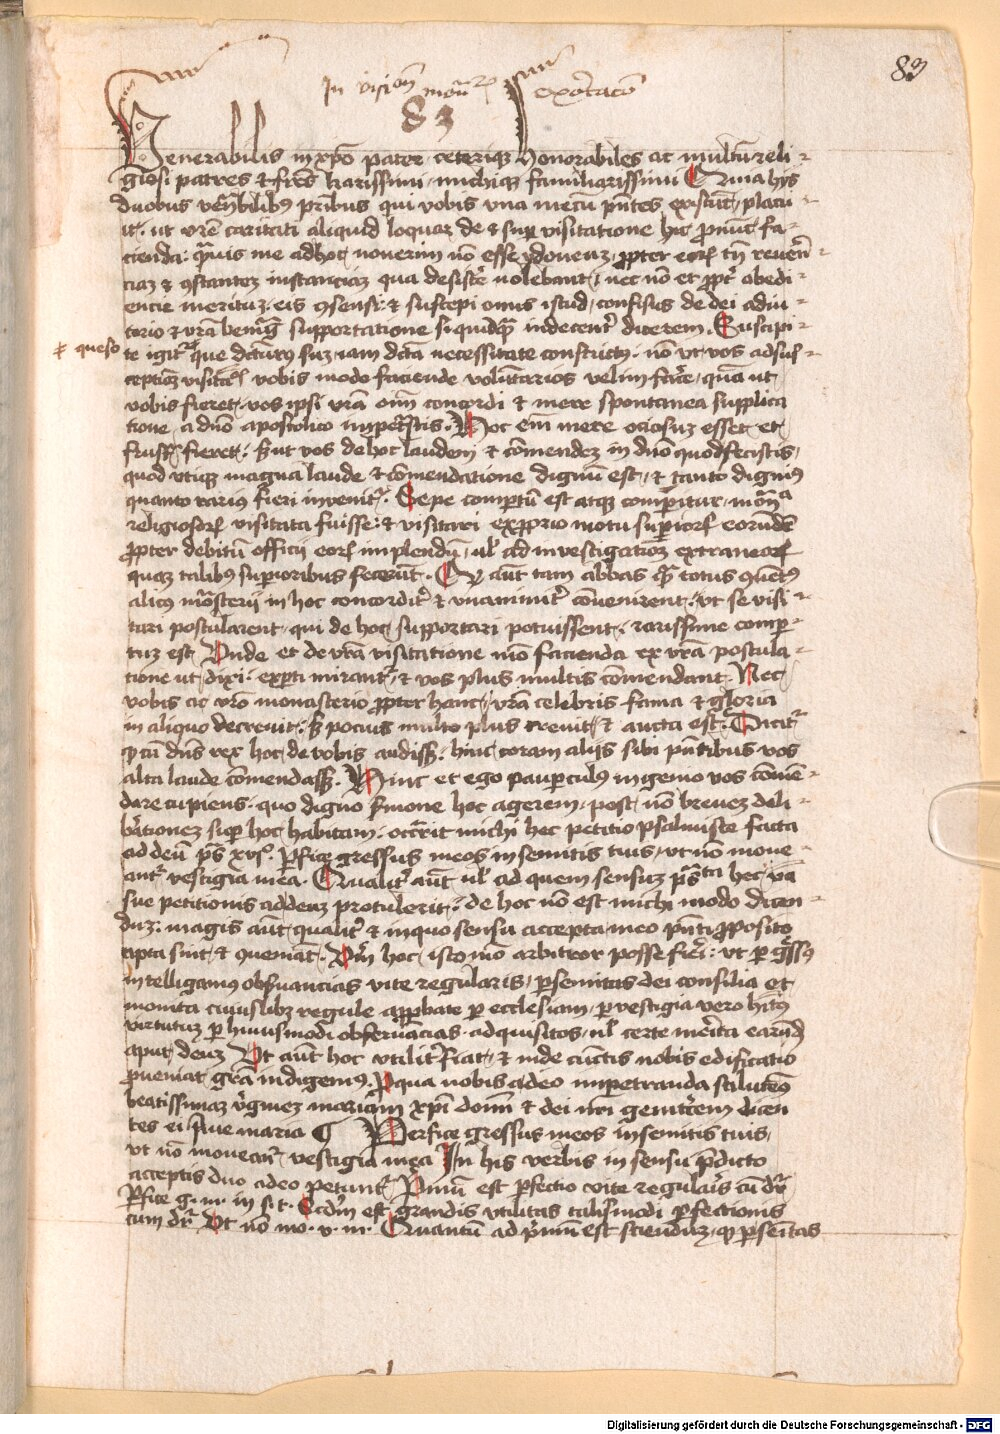 83
In vision mon exortacio
83
Venerabilis in xpo pater ceterique honorabiles ac multum reli-
giosi patres et fres karissimi, michique familiarissimi Quia hys
duobus venbilibus pribus qui vobis una mecum pntes existunt, placu
it, ut vre caritati aliquid loquar de et super visitatione hic pronunc fa-
cienda: quamvis me adhoc noverim non esse ydoneum, propter eorum tamen reveren-
ciam et constantem instanciam qua desistere nolebant, nec non et propter obedi-
encie meritum, eis consensi: et suscepi onus istud, confisus de dei adiu-
torio et vra benigna supportatione si quidquam indecenter dicerem. Suscipi-
queso
te igitur que dicturus sum, iam dicta necessitate constrictus. non ut vos ad sus-
ceptionem visitacionis vobis modo faciende voluntarios velim facere, quam ut
vobis fieret, vos ipsi vra omnium concordi et mere spontanea supplica
tione, a domino apostolico impetrastis. Hoc enim mere ociosum esset et
frustra fieret. sed ut vos de hoc laudem et commendem in domino quod fecistis,
quod utique magna laude et commendatione dignum est, et tanto dignius
quanto rarius fieri invenitur. Sepe compertum est atque comperitur, monasteria
religiosorum visitata fuisse: et visitari ex proprio motu superiorum eorundem
propter debitum officii eorum implendum, vel ad investigationem extraneorum
quam talibus superioribus fecerunt. Quod autem tam abbas quam totus conventus
alicuius monasterii in hoc concorditer et unanimiter convenirent, ut se visi-
tari postularent, qui de hoc supportari potuissent, rarissime comper-
tum est. Unde et de vra visitatione modo facienda ex vra postula-
tione ut dixi, experti mirantur, et vos plus multis commendant. Nec
vobis ac vro monasterio propter hanc, vra celebris fama et gloria
in aliquo decrevit, sed pocius multo plus crevit, et aucta est. Dicitur
quod cum dns rex hoc de vobis audisset, hinc coram aliis sibi pntibus vos
alta laude commendasse. Hinc et ego pauperculus ingenio vos commen-
dare cupiens, quo digno sermone hoc agerem, post non brevem deli-
berationem super hoc habitam, occurrit michi hec petitio psalmiste facta
ad deum ps xvi. Perfice gressus meos in semitis tuis, ut non move-
antur vestigia mea. Qualiter autem vel ad quem sensum psalmista hec verba
sue petitionis ad deum protulerit, de hoc non est michi modo dicen-
dum: magis autem qualiter et in quo sensu accepta meo presenti proposito
apta sint, et conveniant. Verum hoc isto modo arbitror posse fieri: ut per gressus
intelligamus observancias vite regularis, per semitas dei consilia et
monita cuiuslibet regule approbate per ecclesiam, per vestigia vero habitus
virtutum per huiusmodi observancias adquisitos, vel certe merita earundem
aput deum Ut autem hoc utiliter fiat, et inde cunctis nobis edificatio
proveniat gracia indigemus. Pro qua nobis a deo impetranda salutemus
beatissimam virginem mariam xpi domini et dei nri genitricem dicen
tes ei Ave maria Perfice gressus meos in semitis tuis,
ut non moveantur vestigia mea In his verbis in sensu predicto
acceptis duo a deo petuntur. Primum est perfectio vite regularis cum dicitur
Perfice g. m. in s. t. Secundum est grandis utilitas talismodi perfectionis
cum dicitur Ut no mo. v. m. Quantum ad primum est sciendum, quod per semitas
Digitalisierung gefördert durch die Deutsche Forschungsgemeinschaft - DFG